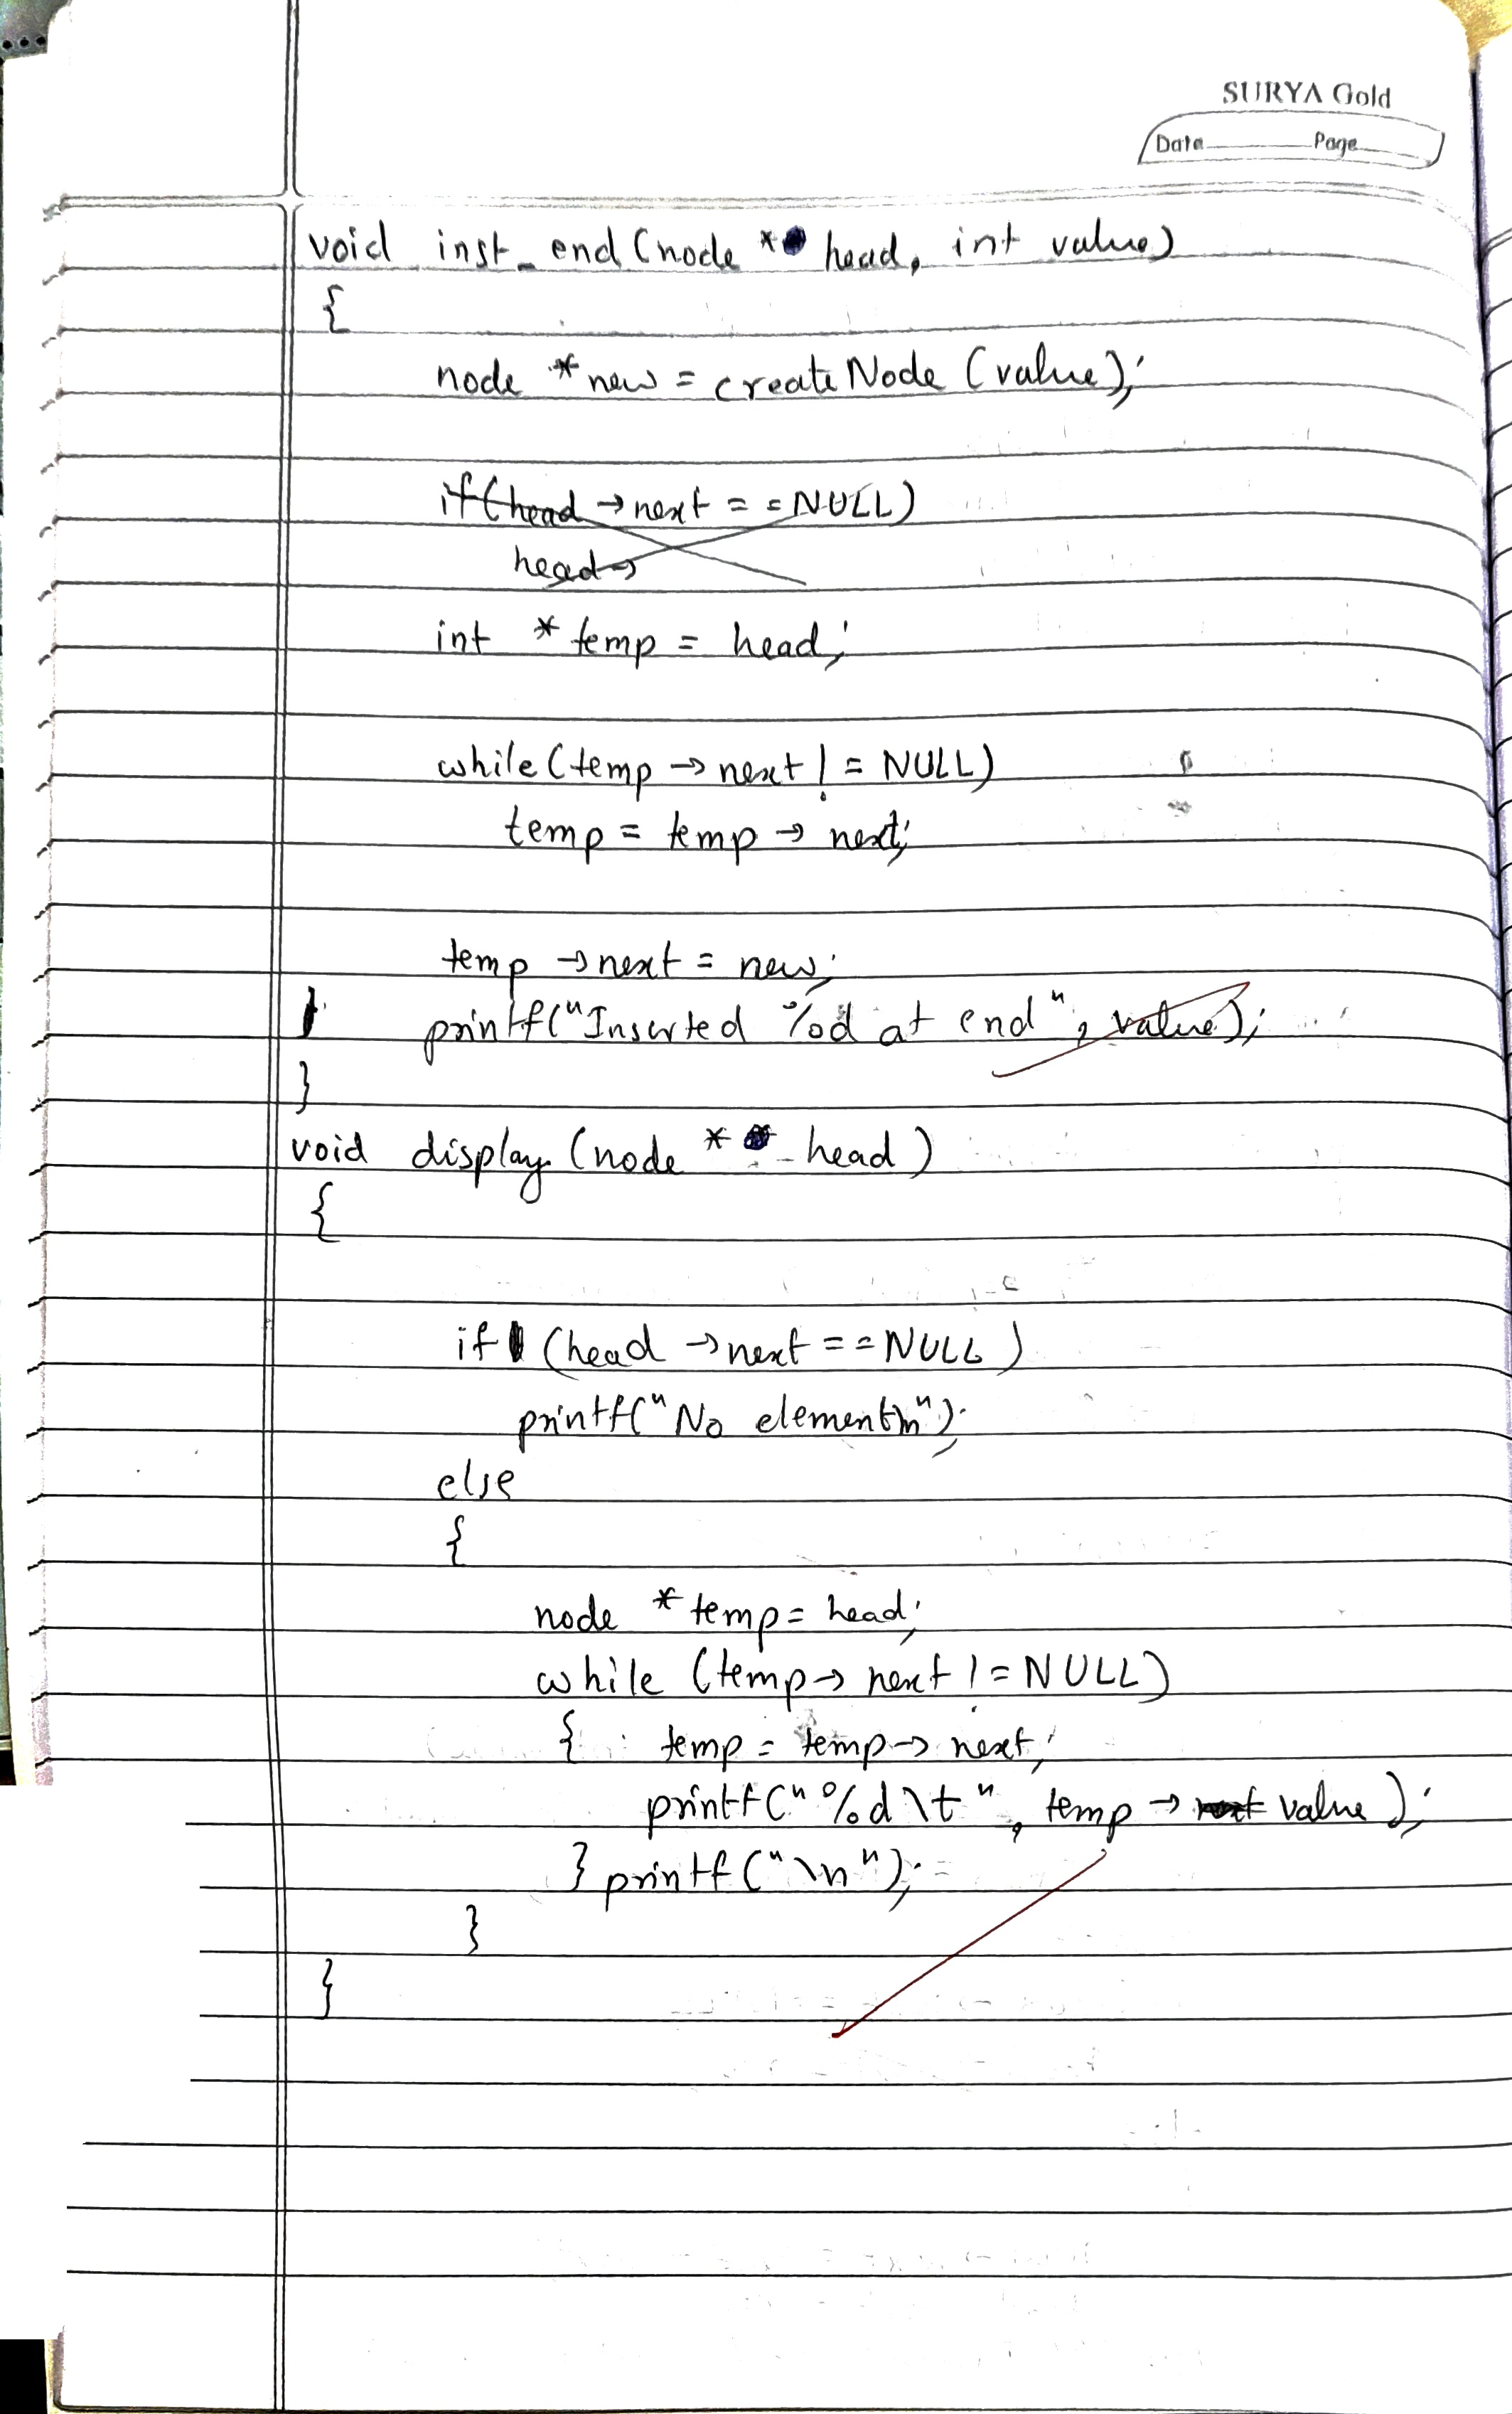 SURYA Gold
Date Page
void inst_end (node * head, int value)
{
node *new = createNode (value);
if (head → next == NULL)
head →
int *temp = head;
while (temp → next != NULL)
temp = temp → next;
temp → next = new;
printf("Inserted %d at end", value);
}
void display (node * head)
{
if (head → next == NULL)
printf("No element\n");
else
{
node *temp = head;
while (temp → next != NULL)
{ temp = temp → next;
printf("%d\t", temp → value);
} printf("\n");
}
}